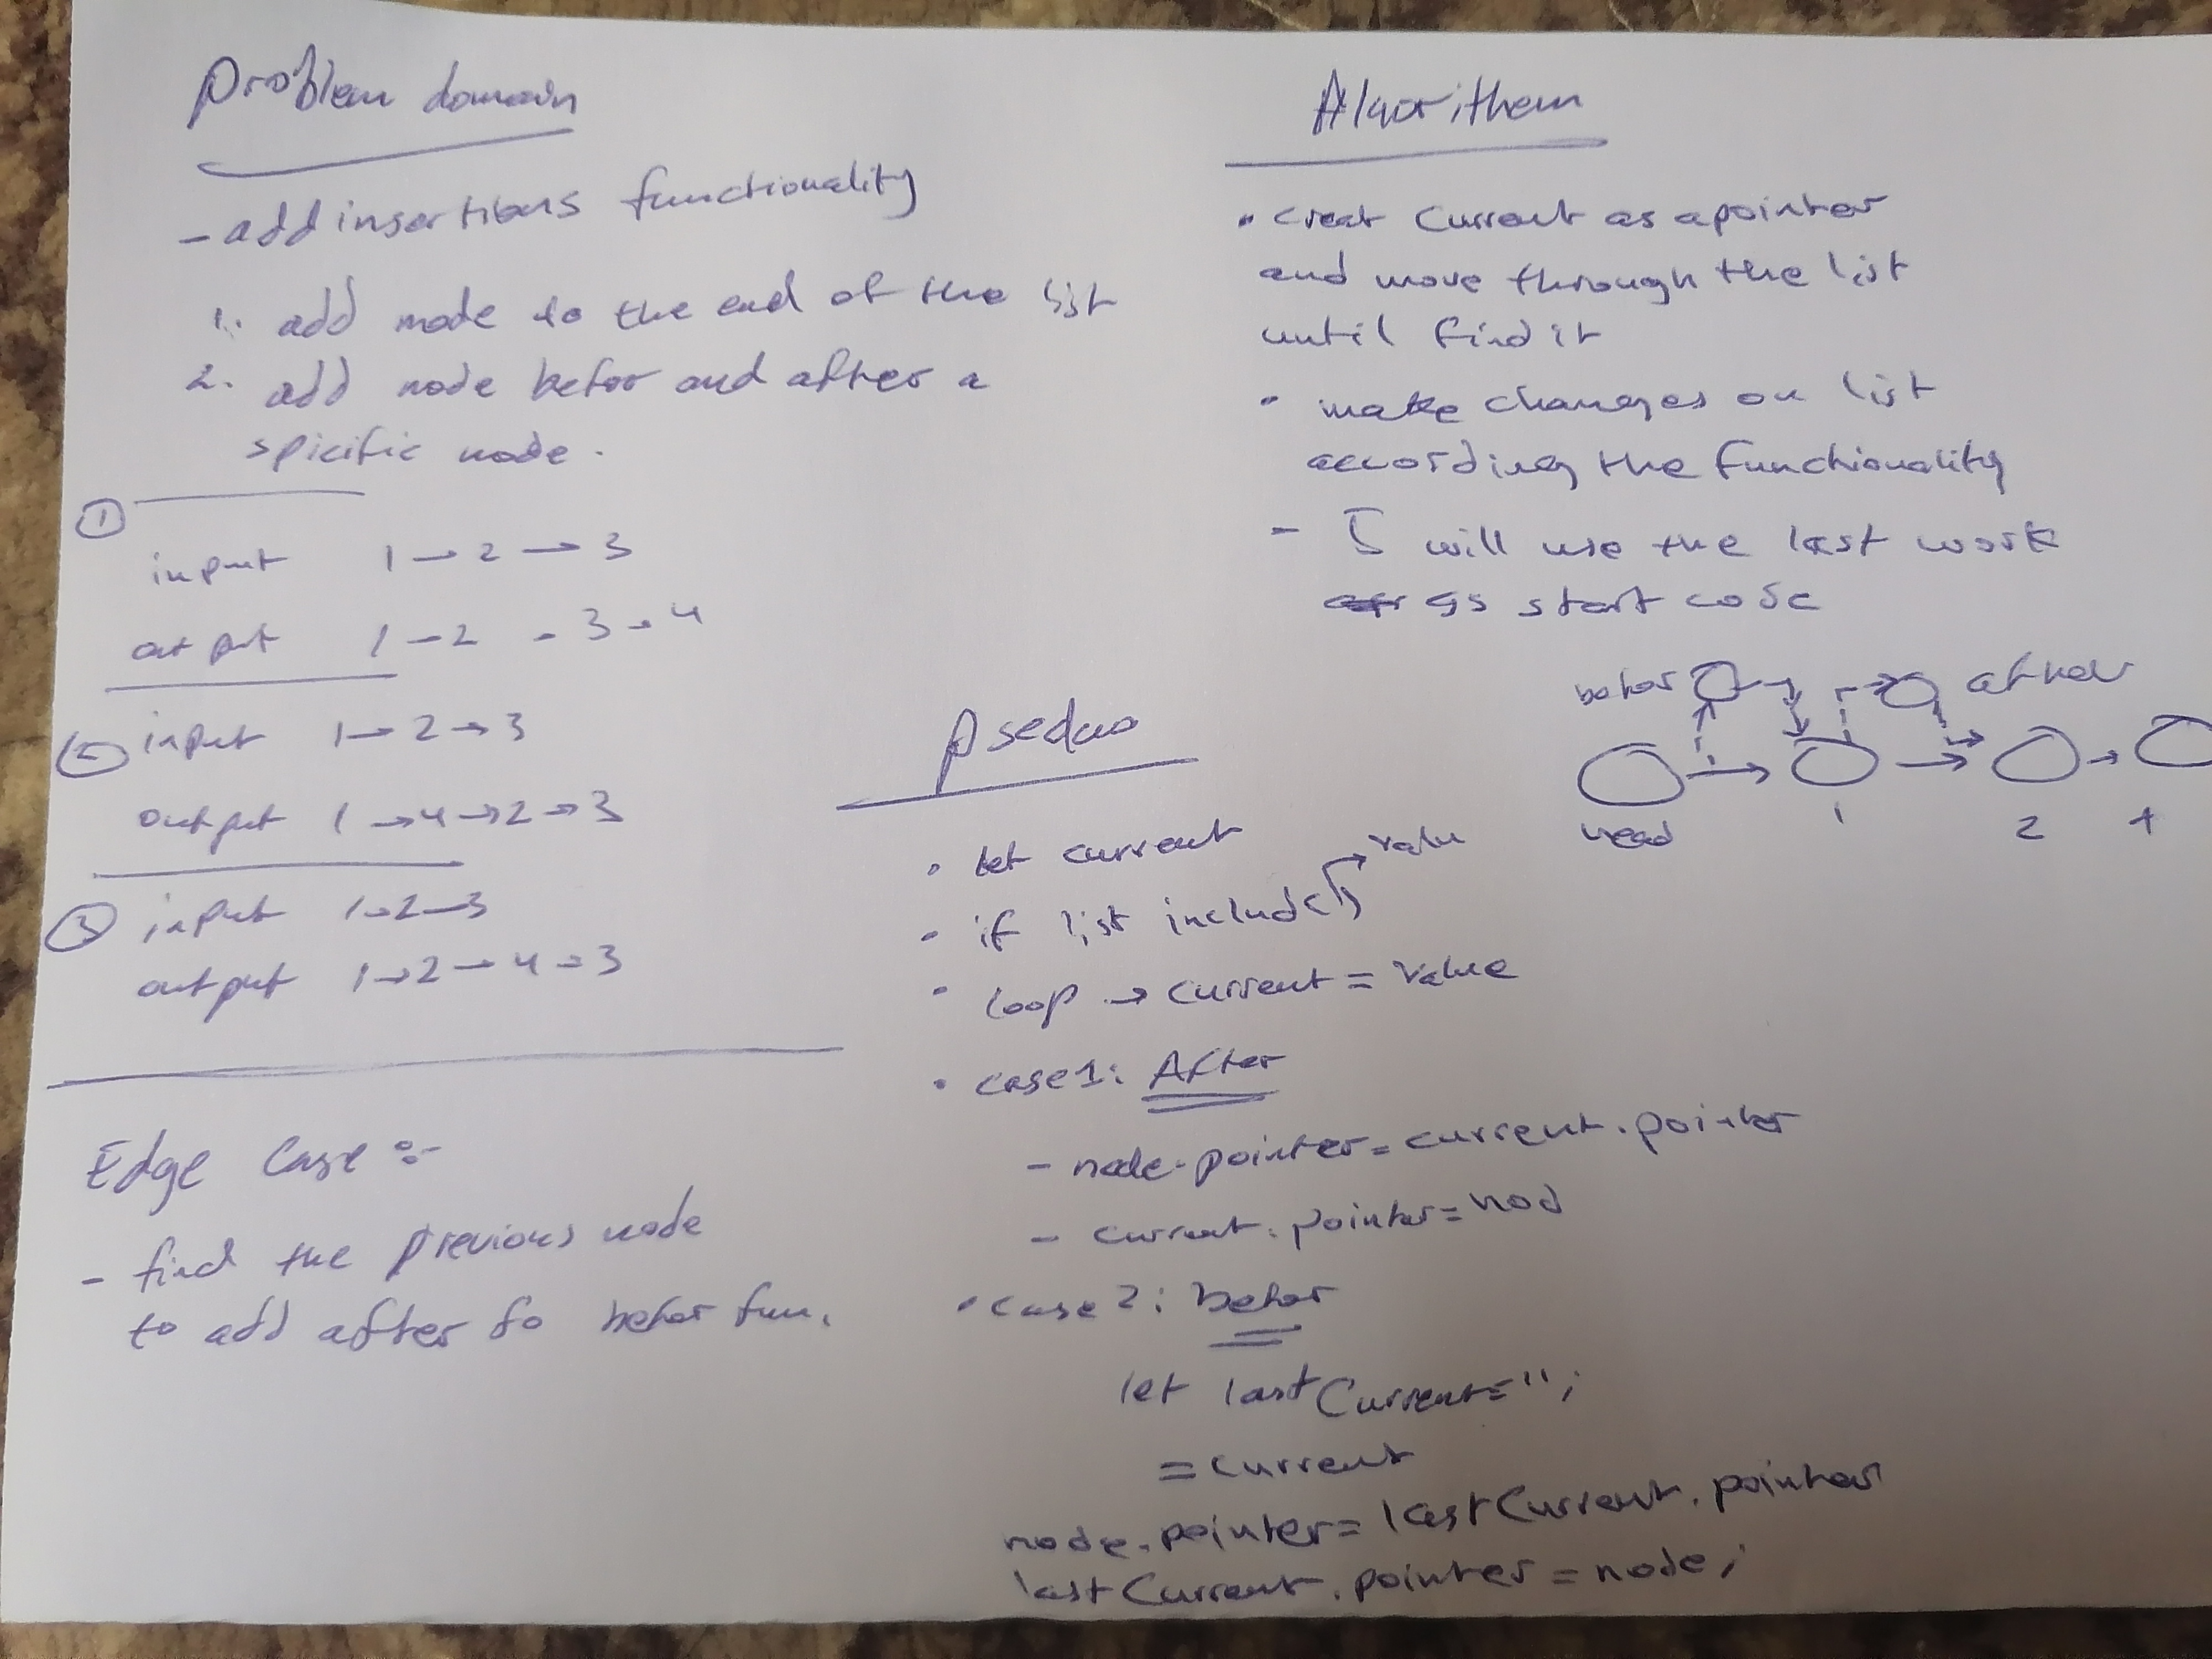 problem domain
- add insertions functionality
1. add node to the end of the list
2. add node befor and after a
spicific node.
①
input 1 → 2 → 3
output 1 - 2 - 3 → 4
②
input 1 → 2 → 3
output 1 → 4 → 2 → 3
③
input 1 → 2 → 3
output 1 → 2 → 4 → 3
Edge Case :-
- find the previous node
to add after fo befor fun.
Algorithem
• creat current as a pointer
and move through the list
until find it
• make changes on list
according the functionality
- I will use the last work
as start code
befor after
head 1 2
pseduo
• let current
value
• if list includ()
• loop → current = value
• case1: After
- node.pointer = current.pointer
- current.pointer = nod
• case 2: befor
let lastCurrent = '';
= current
node.pointer = lastCurrent.pointer
lastCurrent.pointer = node;